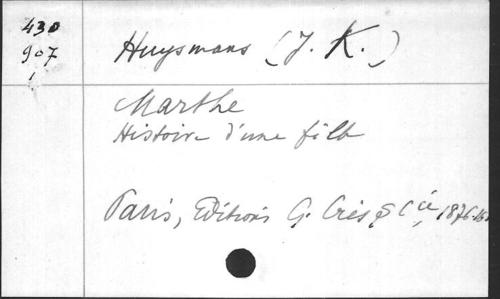 430
907
Huysmans (J. K.)
Marthe
Histoire d'une fille
Paris, Editions G. Crès & Cie, 1876